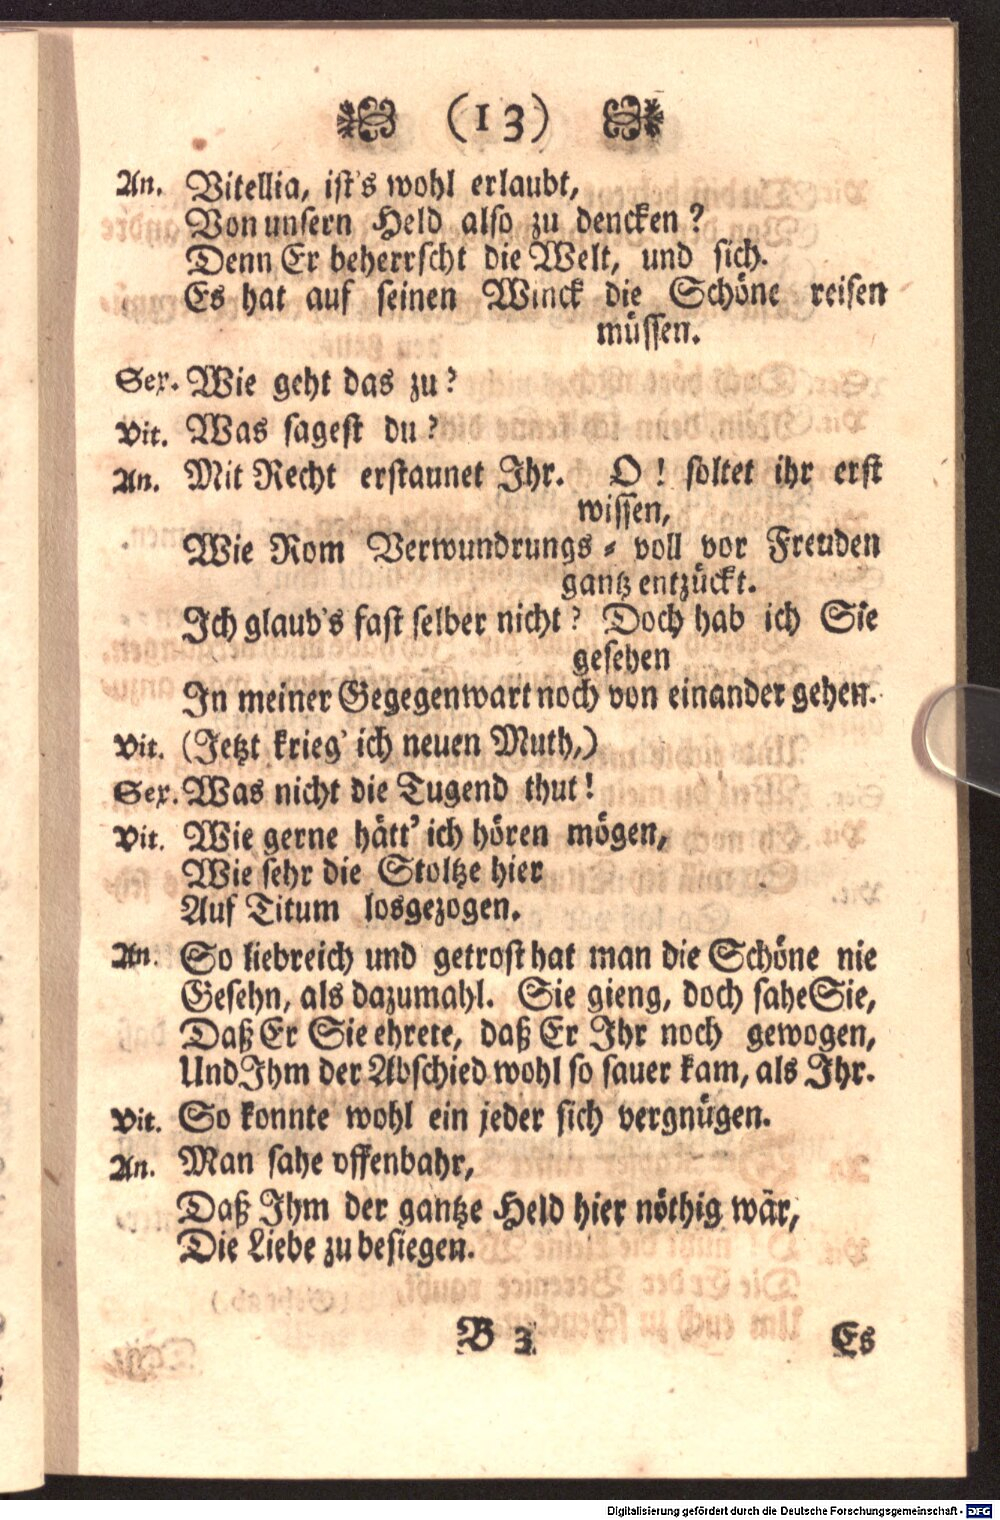 (13)
An. Vitellia, ist's wohl erlaubt,
Von unsern Held also zu dencken?
Denn Er beherrscht die Welt, und sich.
Es hat auf seinen Winck die Schöne reisen
müssen.
Sex. Wie geht das zu?
Vit. Was sagest du?
An. Mit Recht erstaunet Ihr. O! soltet ihr erst
wissen,
Wie Rom Verwundrungs-voll vor Freuden
gantz entzückt.
Ich glaub's fast selber nicht? Doch hab ich Sie
gesehen
In meiner Gegegenwart noch von einander gehen.
Vit. (Jetzt krieg' ich neuen Muth,)
Sex. Was nicht die Tugend thut!
Vit. Wie gerne hätt' ich hören mögen,
Wie sehr die Stoltze hier
Auf Titum losgezogen.
An. So liebreich und getrost hat man die Schöne nie
Gesehn, als dazumahl. Sie gieng, doch sahe Sie,
Daß Er Sie ehrete, daß Er Ihr noch gewogen,
Und Ihm der Abschied wohl so sauer kam, als Ihr.
Vit. So konnte wohl ein jeder sich vergnügen.
An. Man sahe offenbahr,
Daß Ihm der gantze Held hier nöthig wär,
Die Liebe zu besiegen.
B 3 Es
Digitalisierung gefördert durch die Deutsche Forschungsgemeinschaft - DFG